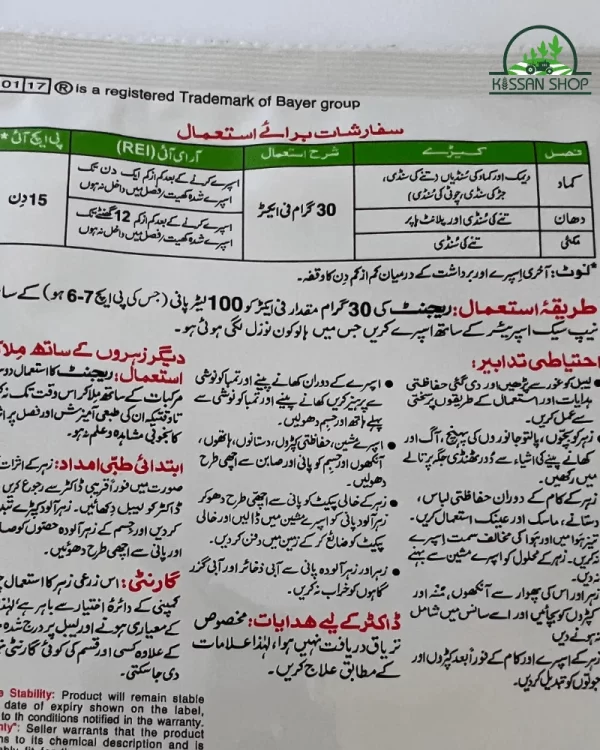 KISSAN SHOP
01 17 ® is a registered Trademark of Bayer group
سفارشات برائے استعمال
فصل کیڑے شرح استعمال آر ای آئی (REI) پی ایچ آئی *
کماد دیمک اور کماد کی سُنڈیاں (تنے کی سنڈی، جڑ کی سنڈی، چوٹی کی سُنڈی) 30 گرام فی ایکڑ اسپرے کرنے کے بعد کم از کم ایک دن تک اسپرے شدہ کھیت/فصل میں داخل نہ ہوں 15 دن
دھان تنے کی سُنڈی اور پلانٹ ہاپر اسپرے کرنے کے بعد کم از کم 12 گھنٹے تک اسپرے شدہ کھیت/فصل میں داخل نہ ہوں
مکئی تنے کی سُنڈی
*نوٹ: آخری اسپرے اور برداشت کے درمیان کم از کم دن کا وقفہ۔
طریقۂ استعمال: ریجنٹ کی 30 گرام مقدار فی ایکڑ کو 100 لیٹر پانی (جس کی پی ایچ 7-6 ہو) کے
نیپ سیک اسپریئر کے ساتھ اسپرے کریں جس میں ہالوکون نوزل لگی ہوئی ہو۔
احتیاطی تدابیر:
• لیبل کو غور سے پڑھیں اور دی گئی حفاظتی
ہدایات اور استعمال کے طریقوں پر سختی
سے عمل کریں۔
زہر کو بچوں، پالتو جانوروں کی پہنچ، آگ اور
کھانے پینے کی اشیاء سے دُور ٹھنڈی جگہ پر تالے
میں رکھیں۔
زہر کے کام کے دوران حفاظتی لباس،
دستانے، ماسک اور عینک استعمال کریں۔
تیز ہوا میں اور ہوا کی مخالف سمت اسپرے
نہ کریں۔ زہر کے محلول کو اسپرے مشین سے بہنے
نہ دیں۔
زہر اور اس کی پھوار سے آنکھوں، منہ اور
کپڑوں کو بچائیں اور اسے سانس میں شامل
نہ ہونے دیں
زہر کے اسپرے اور کام کے فوراً بعد کپڑوں اور
جوتوں کو تبدیل کریں۔
• اسپرے کے دوران کھانے پینے اور تمباکو نوشی
سے پرہیز کریں کھانے پینے اور تمباکو نوشی سے
پہلے ہاتھ اور جسم دھولیں۔
• اسپرے مشین، حفاظتی کپڑوں، دستانوں، ہاتھوں،
آنکھوں اور جسم کو پانی اور صابن سے اچھی طرح
دھولیں۔
• زہر کے خالی پیکٹ کو پانی سے اچھی طرح دھو کر
زہر آلود پانی کو اسپرے مشین میں ڈالیں اور خالی
پیکٹ کو ضائع کر کے زمین میں دفن کر دیں۔
• زہر اور زہر آلودہ پانی سے آبی ذخائر اور آبی گزر
گاہوں کو خراب نہ کریں۔
ڈاکٹر کے لیے ہدایات: مخصوص
تریاق دریافت نہیں ہوا، لہٰذا علامات
کے مطابق علاج کریں۔
دیگر زہروں کے ساتھ
استعمال: ریجنٹ کا استعمال
مرکبات کے ساتھ ملا کر اس وقت تک نہ
تاوقتیکہ ان کی طبعی آمیزش اور فصل پر
کا بخوبی مشاہدہ و علم نہ ہو۔
ابتدائی طبّی امداد: زہر کے
صورت میں فوراً قریبی ڈاکٹر سے رجوع کریں
ڈاکٹر کو لیبل دکھائیں۔ زہر آلود کپڑے
کر دیں اور جسم کے زہر آلودہ حصوں کو
اور پانی سے اچھی طرح دھوئیں۔
گارنٹی: اس زرعی زہر کا استعمال
کمپنی کے دائرۂ اختیار سے باہر ہے
کے معیاری ہونے اور لیبل پر درج شدہ
کے علاوہ کسی اور قسم کی کوئی گارنٹی
دی جا سکتی۔
Stability: Product will remain stable
date of expiry shown on the label,
to Ih conditions notified in the warranty.
Seller warrants that the product
to its chemical description and is